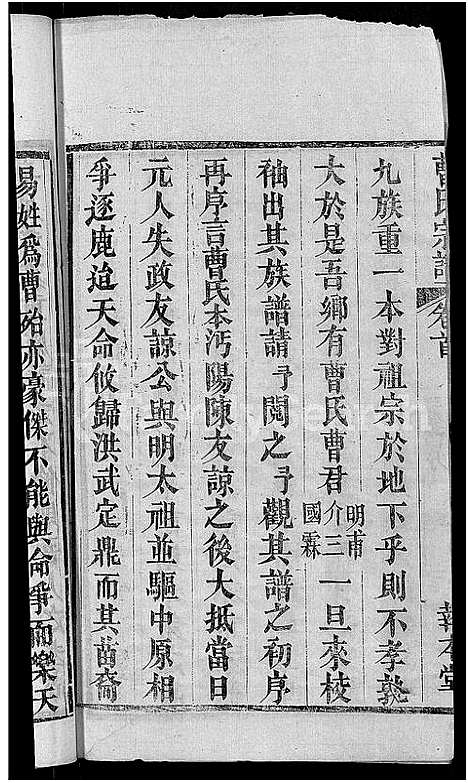 曹氏宗譜
卷首
報本堂
九族重一本對祖宗於地下乎則不孝孰
大於是吾鄉有曹氏曹君明甫介三國霖一旦來校
袖出其族譜請予閱之予觀其譜之初序
再序言曹氏本沔陽陳友諒之後大抵當日
元人失政友諒公與明太祖並驅中原相
爭逐鹿迨天命攸歸洪武定鼎而其苗裔
易姓爲曹殆亦豪傑不能與命爭而樂天